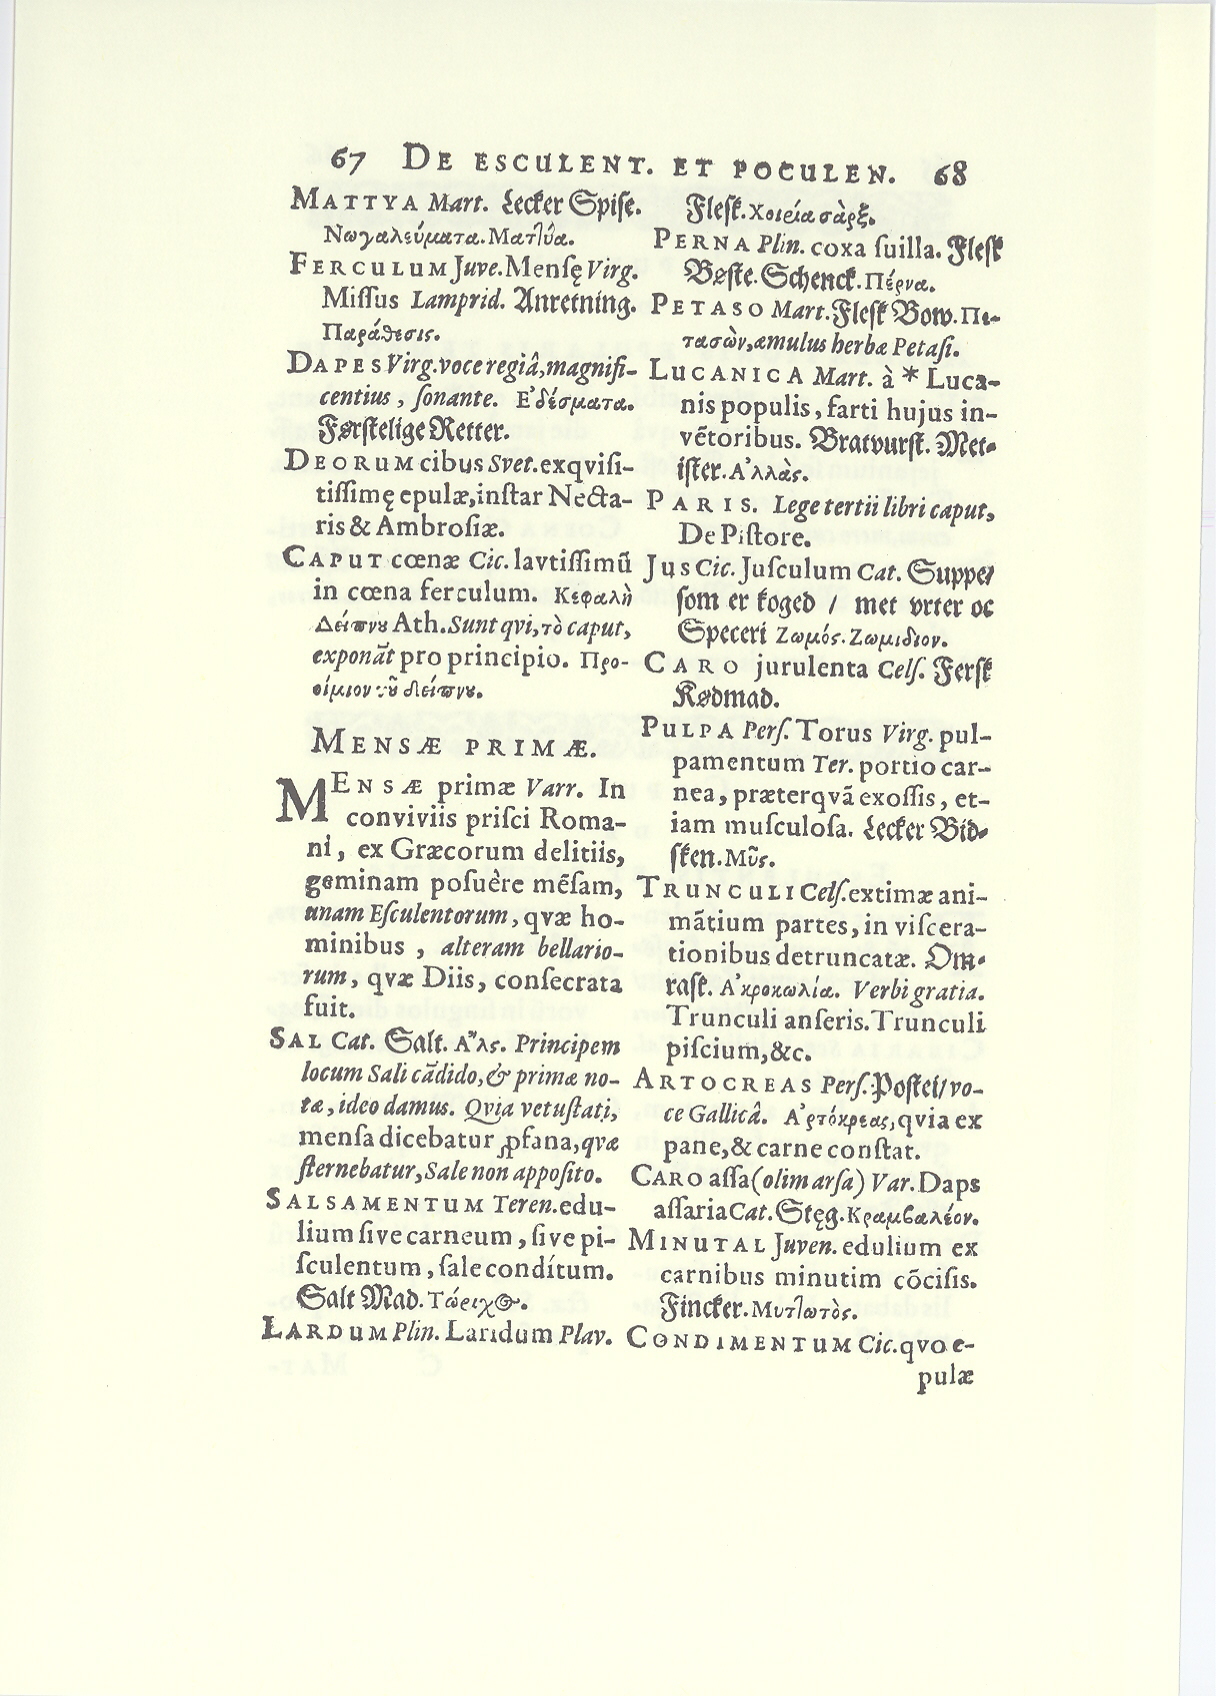 67 DE ESCULENT. ET POCULEN. 68
MATTYA Mart. Lecker Spiſe.
Νωγαλεύματα. Ματ]ύα.
FERCULUM Juve. Menſę Virg.
Miſſus Lamprid. Anretning.
Παράθεσις.
DAPES Virg. voce regiâ, magnifi-
centius, ſonante. Ε᾽δέσματα.
Førſtelige Retter.
DEORUM cibus Svet. exqviſi-
tiſſimę epulæ, inſtar Necta-
ris & Ambroſiæ.
CAPUT cœnæ Cic. lavtiſſimũ
in cœna ferculum. Κεφαλὴ
Δείπνȣ Ath. Sunt qvi, τὸ caput,
exponãt pro principio. Προ-
οίμιον τȣ͂ δείπνȣ.
MENSÆ PRIMÆ.
MENSÆ primæ Varr. In
conviviis priſci Roma-
ni, ex Græcorum delitiis,
geminam poſuère mẽſam,
unam Eſculentorum, qvæ ho-
minibus, alteram bellario-
rum, qvæ Diis, conſecrata
fuit.
SAL Cat. Salt. Α῞λς. Principem
locum Sali cãdido, & primæ no-
tæ, ideo damus. Qvia vetuſtati,
menſa dicebatur ꝓfana, qvæ
ſternebatur, Sale non appoſito.
SALSAMENTUM Teren. edu-
lium ſive carneum, ſive pi-
ſculentum, ſale condítum.
Salt Mad. Τάριχ۞.
LARDUM Plin. Laridum Plav.
Fleſk. Χοιρεία σὰρξ.
PERNA Plin. coxa ſuilla. Fleſk
Bøſte. Schenck. Πέρνα.
PETASO Mart. Fleſk Bow. Πε-
τασὼν, æmulus herbæ Petaſi.
LUCANICA Mart. à * Luca-
nis populis, farti hujus in-
vẽtoribus. Bratvurſt. Met-
iſter. Α᾽λλὰς.
PARIS. Lege tertii libri caput,
De Piſtore.
JUS Cic. Juſculum Cat. Suppe/
ſom er koged / met vrter oc
Speceri Ζωμός. Ζωμιδιον.
CARO jurulenta Celſ. Ferſk
Kødmad.
PULPA Perſ. Torus Virg. pul-
pamentum Ter. portio car-
nea, præterqvã exoſſis, et-
iam muſculoſa. Lecker Bid-
ſken. Μῦς.
TRUNCULI Celſ. extimæ ani-
mãtium partes, in viſcera-
tionibus detruncatæ. Om-
raſt. Α᾽κροκωλία. Verbi gratia.
Trunculi anſeris. Trunculi
piſcium, &c.
ARTOCREAS Perſ. Poſtei/ vo-
ce Gallicâ. Α᾽ρτόκρεας, qvia ex
pane, & carne conſtat.
CARO aſſa (olim arſa) Var. Daps
aſſaria Cat. Stęg. Κραμβαλέον.
MINUTAL Juven. edulium ex
carnibus minutim cõciſis.
Fincker. Μυτ]ωτὸς.
CONDIMENTUM Cic. qvo e-
pulæ